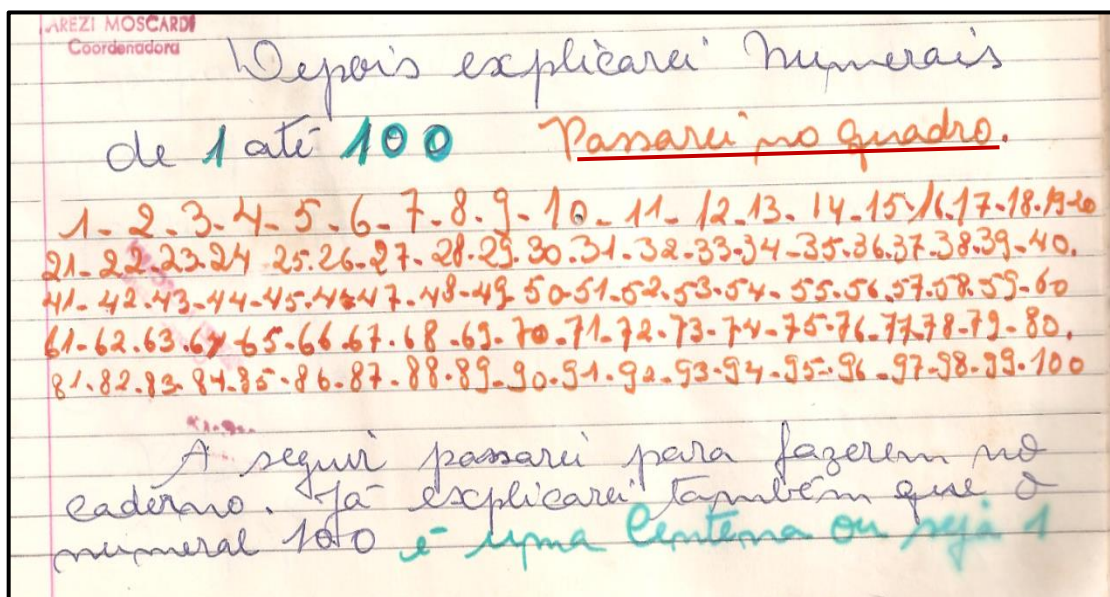 AREZI MOSCARDI
Coordenadora
Depois explicarei numerais
de 1 até 100 Passarei no quadro.
1-2-3-4-5-6-7-8-9-10-11-12-13-14-15-16-17-18-19-20
21-22-23-24-25-26-27-28-29-30-31-32-33-34-35-36-37-38-39-40.
41-42-43-44-45-46-47-48-49-50-51-52-53-54-55-56-57-58-59-60
61-62-63-64-65-66-67-68-69-70-71-72-73-74-75-76-77-78-79-80.
81-82-83-84-85-86-87-88-89-90-91-92-93-94-95-96-97-98-99-100
A seguir passarei para fazerem no
caderno. Já explicarei também que o
numeral 100 é uma Centena ou sejá 1